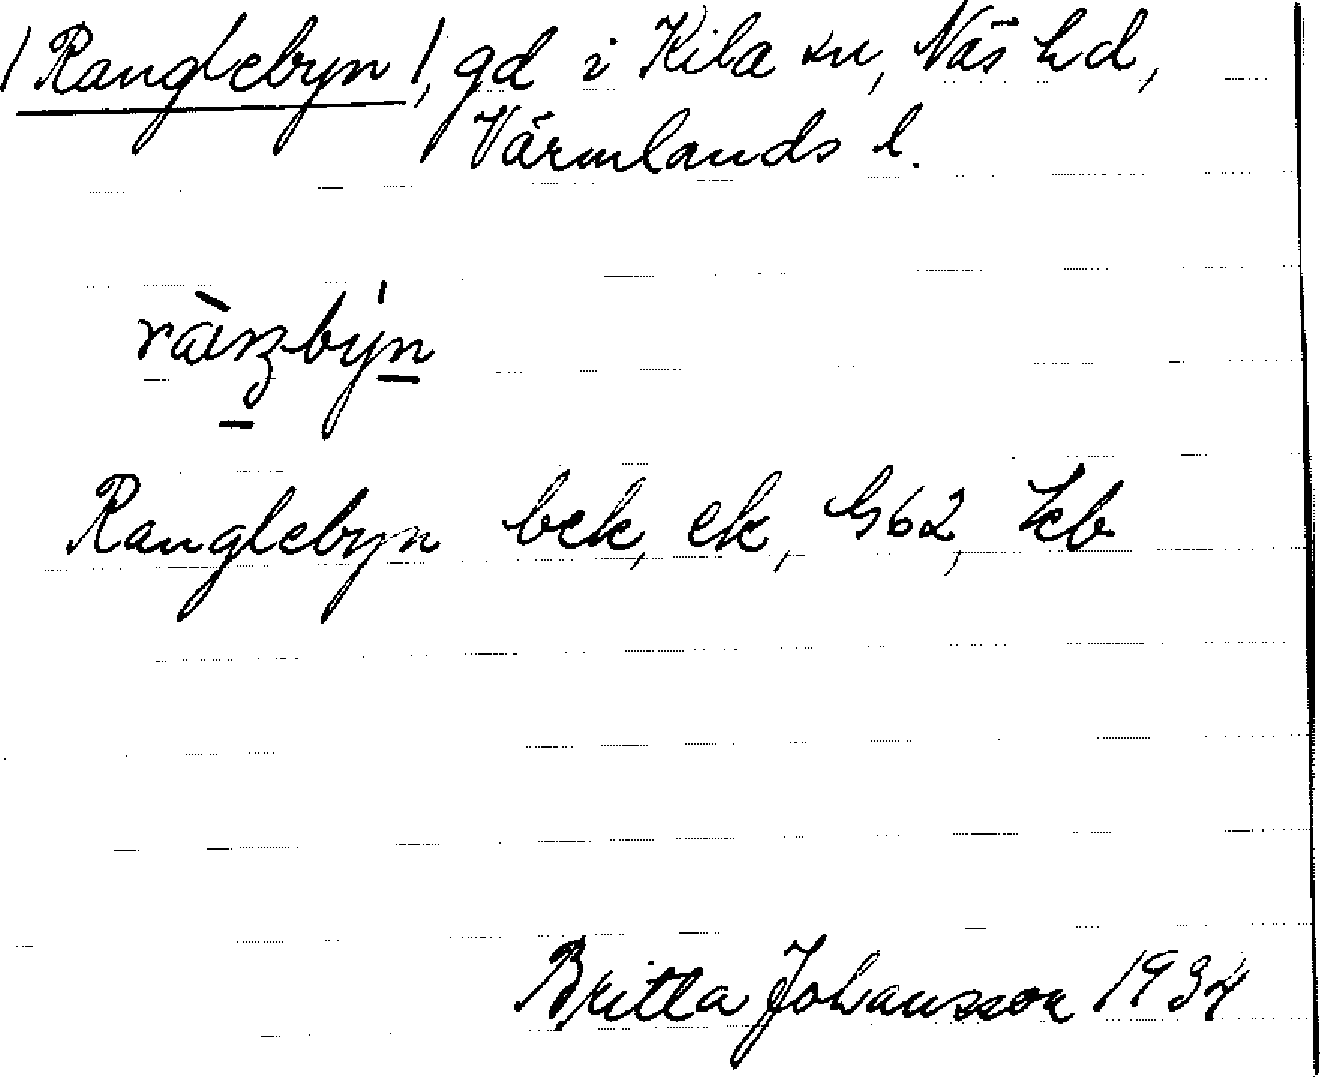 /Ranglebyn/, gd i Kila sn, Näs hd,
Värmlands l.
Ranglebyn bek, ek, G62, Kb
Britta Johansson 1934